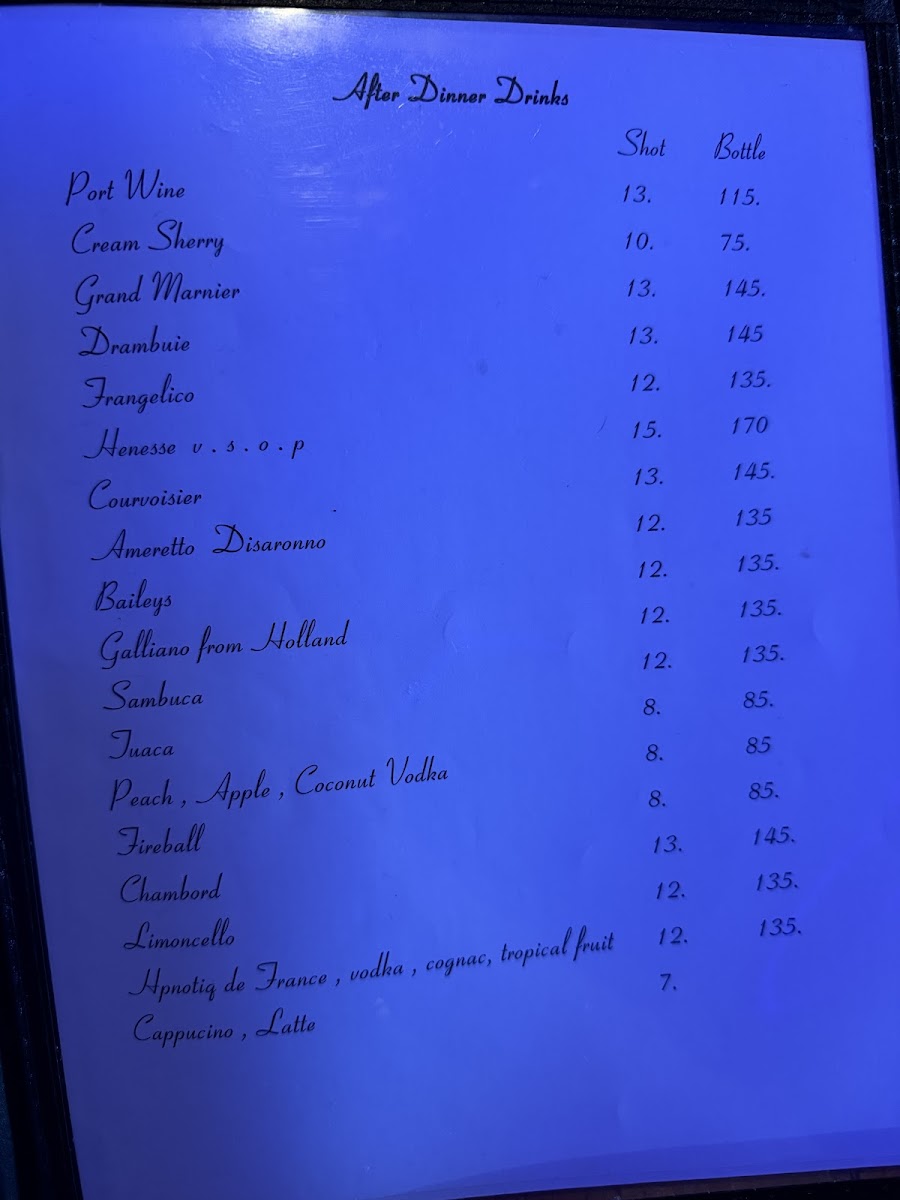 After Dinner Drinks
Shot Bottle
Port Wine 13. 115.
Cream Sherry 10. 75.
Grand Marnier 13. 145.
Drambuie 13. 145
Frangelico 12. 135.
Henesse v . s . o . p 15. 170
Courvoisier 13. 145.
Ameretto Disaronno 12. 135
Baileys 12. 135.
Galliano from Holland 12. 135.
Sambuca 12. 135.
Tuaca 8. 85.
Peach , Apple , Coconut Vodka 8. 85
Fireball 8. 85.
Chambord 13. 145.
Limoncello 12. 135.
Hpnotiq de France , vodka , cognac, tropical fruit 12. 135.
Cappucino , Latte 7.